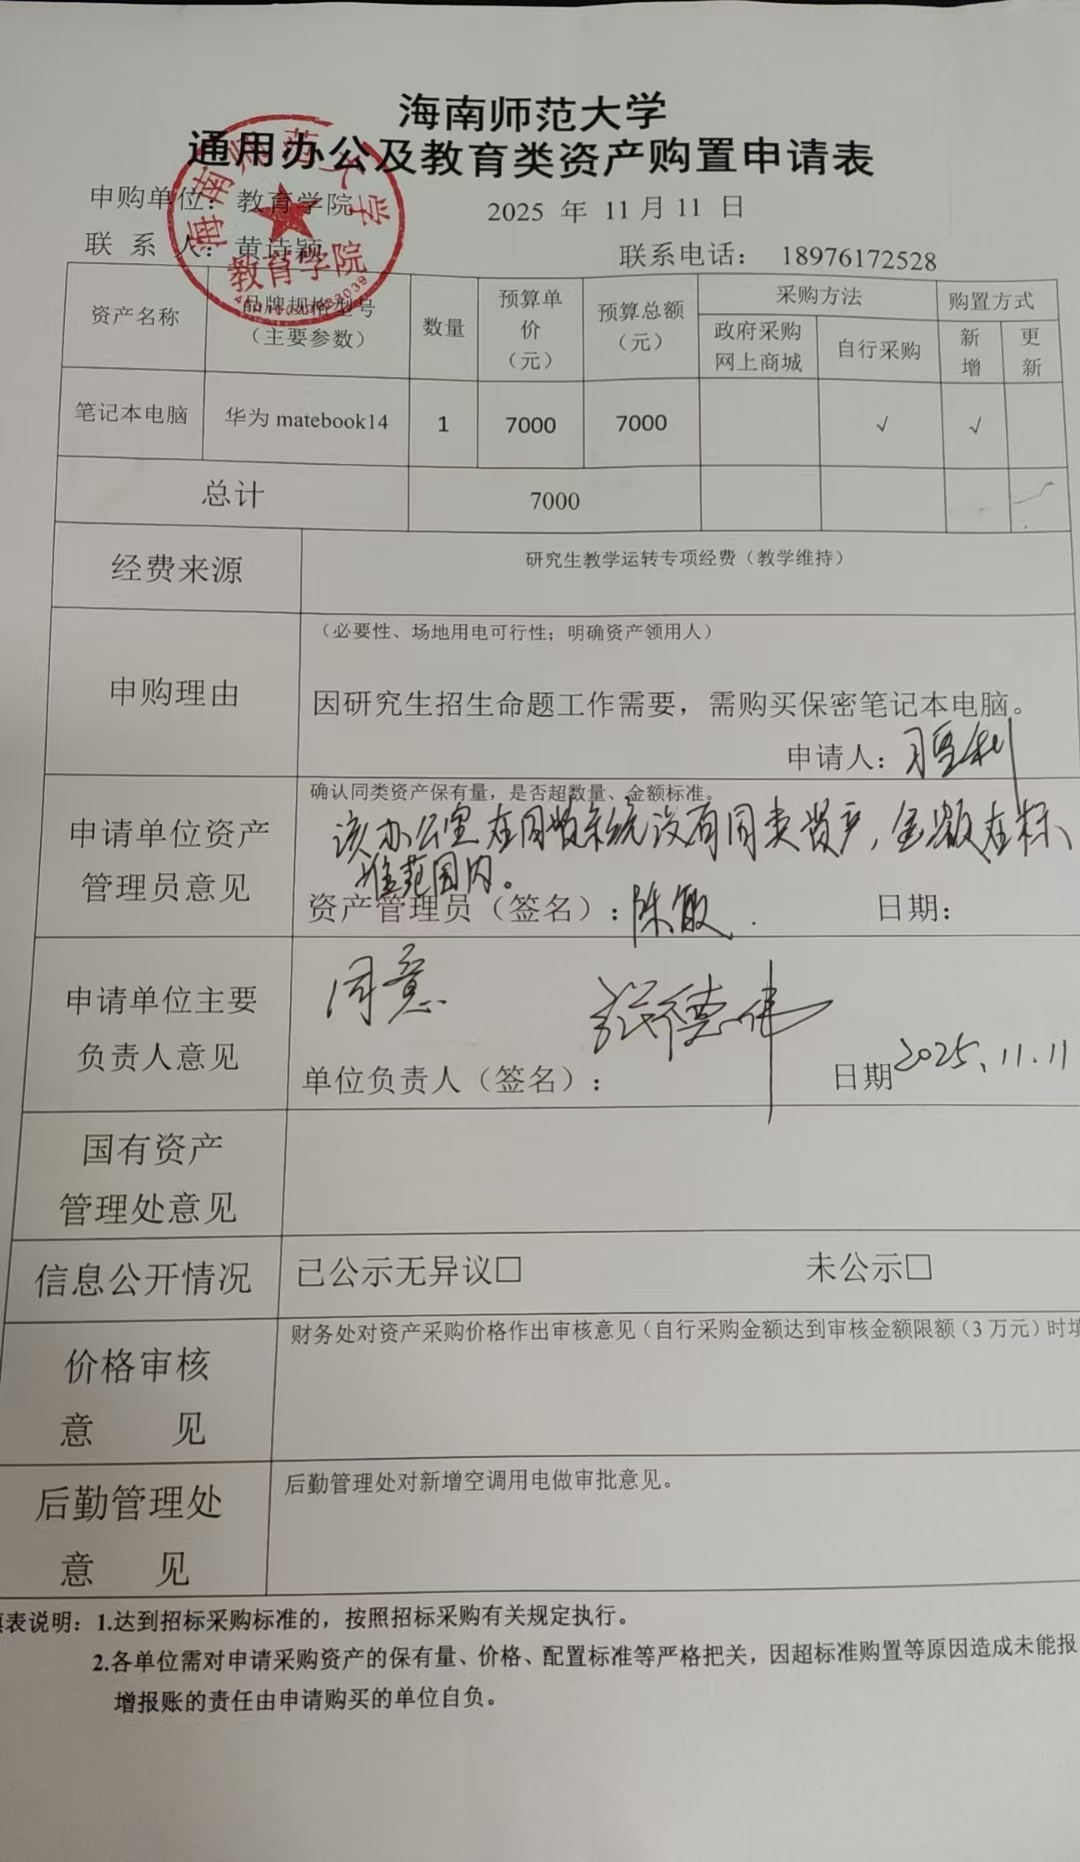 海南师范大学
通用办公及教育类资产购置申请表
申购单位：教育学院
2025 年 11月11 日
联 系 人：黄诗颖
联系电话： 18976172528
海南师范大学
教育学院
资产名称
品牌规格型号
（主要参数）
数量
预算单
价
（元）
预算总额
（元）
采购方法
购置方式
政府采购
网上商城
自行采购
新
增
更
新
笔记本电脑
华为 matebook14
1
7000
7000
√
√
总计
7000
经费来源
研究生教学运转专项经费（教学维持）
申购理由
（必要性、场地用电可行性；明确资产领用人）
因研究生招生命题工作需要，需购买保密笔记本电脑。
申请人：
申请单位资产
管理员意见
确认同类资产保有量，是否超数量、金额标准。
该办公室在国资系统没有同类资产，金额在标
准范围内。
资产管理员（签名）：陈敏
日期：
申请单位主要
负责人意见
同意
单位负责人（签名）：
德伟
日期 2025.11.11
国有资产
管理处意见
信息公开情况
已公示无异议□
未公示□
价格审核
意 见
财务处对资产采购价格作出审核意见（自行采购金额达到审核金额限额（3 万元）时填
后勤管理处
意 见
后勤管理处对新增空调用电做审批意见。
表说明：1.达到招标采购标准的，按照招标采购有关规定执行。
2.各单位需对申请采购资产的保有量、价格、配置标准等严格把关，因超标准购置等原因造成未能报
增报账的责任由申请购买的单位自负。